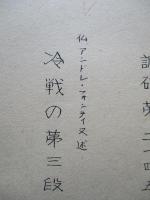 調研第二一四五
仏アンドレ・フォンテイヌ述
冷戦の第三段